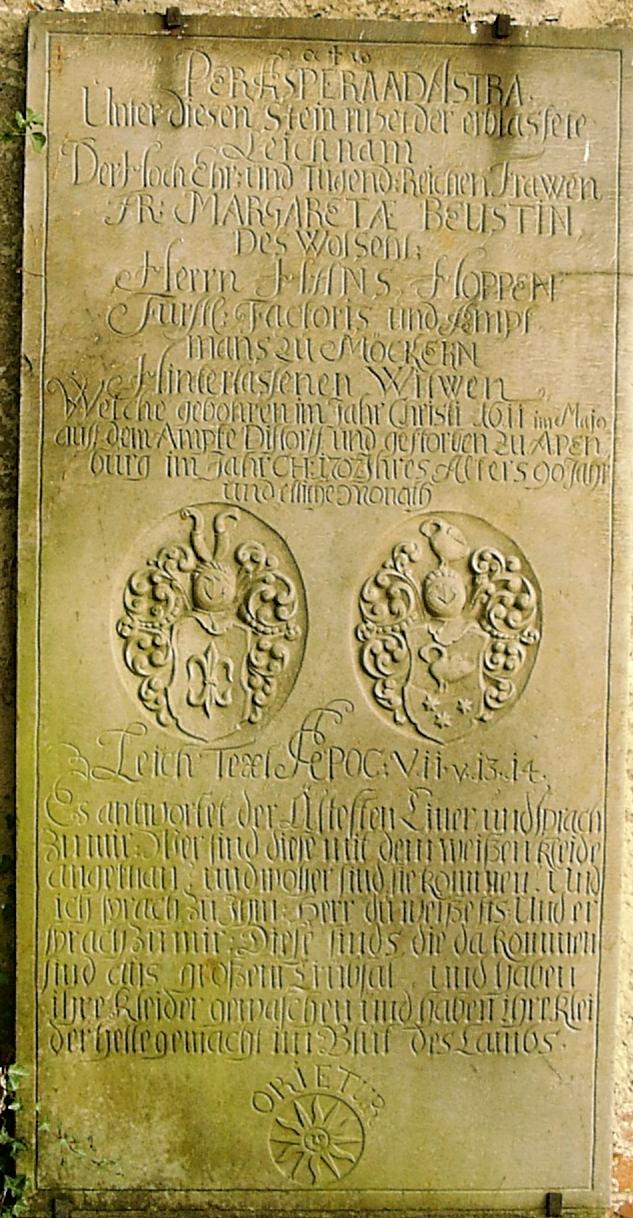 PER ASPERA AD ASTRA.
Unter diesen Stein ruhet der erblassete
Leichnam
Der Hoch Ehr: und Tugend: Reichen Frawen
FR: MARGARETÆ BEUSTIN,
Des Wolsehl:
Herrn HANS HOPPEN
Fürstl: Factoris und Ampt
mans zu MÖCKERN
Hinterlassenen Witwen
Welche gebohren im Jahr Christi 1611 im Majo
auff dem Ampte und gestorben zu Apen
burg im Jahr CH: 1702 Ihres Alters 90 Jahr
und etliche Monath
Leich Text APOC: VII. v. 13. 14.
Es antwortet der Ältesten Einer und sprach
zu mir: Wer sind diese mit dem weißen kleide
angethan, und woher sind sie kommen. Und
ich sprach zu Ihm: Herr du weißest es. Und er
sprach zu mir: Diese sinds die da kommen
sind aus großem Trübsal, und haben
ihre Kleider gewaschen und haben ihre klei
der helle gemacht im Blut des Lambs.
ORIETUR